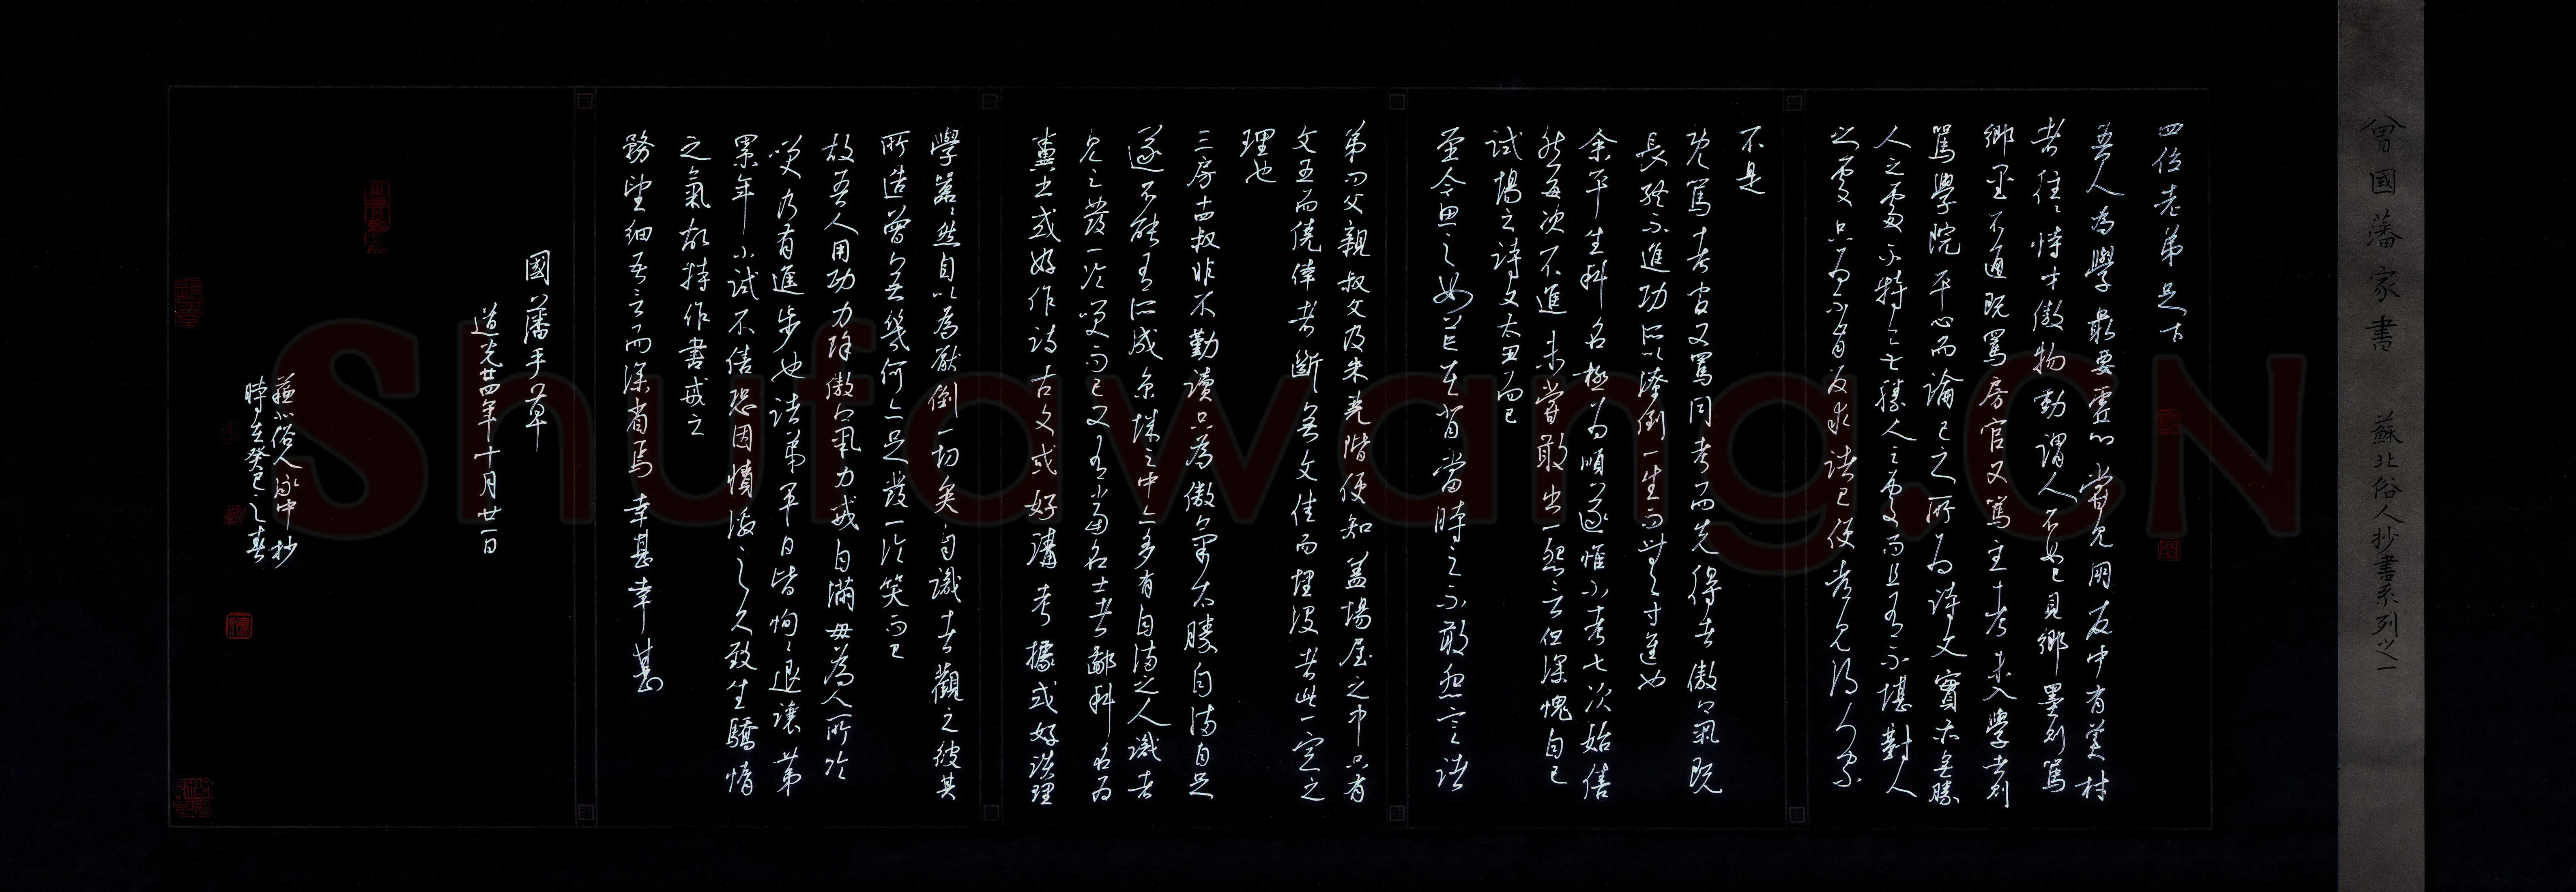 曾國藩家書 蘇北俗人抄書系列之一
四位老弟足下
吾人為學最要虛心嘗見朋友中有美材
者往々恃才傲物動謂人不如己見鄉墨則罵
鄉墨不通既罵房官又罵主考未入學者則
罵學院平心而論己之所為詩文實亦無勝
人之處不特無勝人之處而且有不堪對人
之處只為不肯反求諸己便考見得人家
不是
既罵考官又罵同考而先得者傲氣既
長終不進功所以潦倒一生而無寸進也
余平生科名極為順遂惟小考七次始售
然每次不進未嘗敢出一怨言但深愧自己
試場之詩文太丑而已
至今思之如芒在背當時之不敢怨言諸
弟問父親叔父及朱堯階便知蓋場屋之中只有
文丑而僥倖者斷無文佳而埋沒者此一定之
理也
三房十四叔非不勤讀只為傲氣太勝自滿自足
遂不能有所成京城之中亦多有自滿之人識者
見之發一冷笑而已又有當名士者鄙科名為
糞土或好作詩古文或好講考據或好談理
學囂々然自以為壓倒一切矣自識者觀之彼其
所造曾無幾何亦足發一冷笑而已
故吾人用功力除傲氣力戒自滿毋為人所冷
笑乃有進步也諸弟平日皆恂々退讓第
累年小試不售恐因憤激之久致生驕惰
之氣故特作書戒之
務望細吾言而深省焉幸甚幸甚
國藩手草
道光廿四年十月廿一日
蘇北俗人永中抄
時在癸巳之春
Shufawang.CN